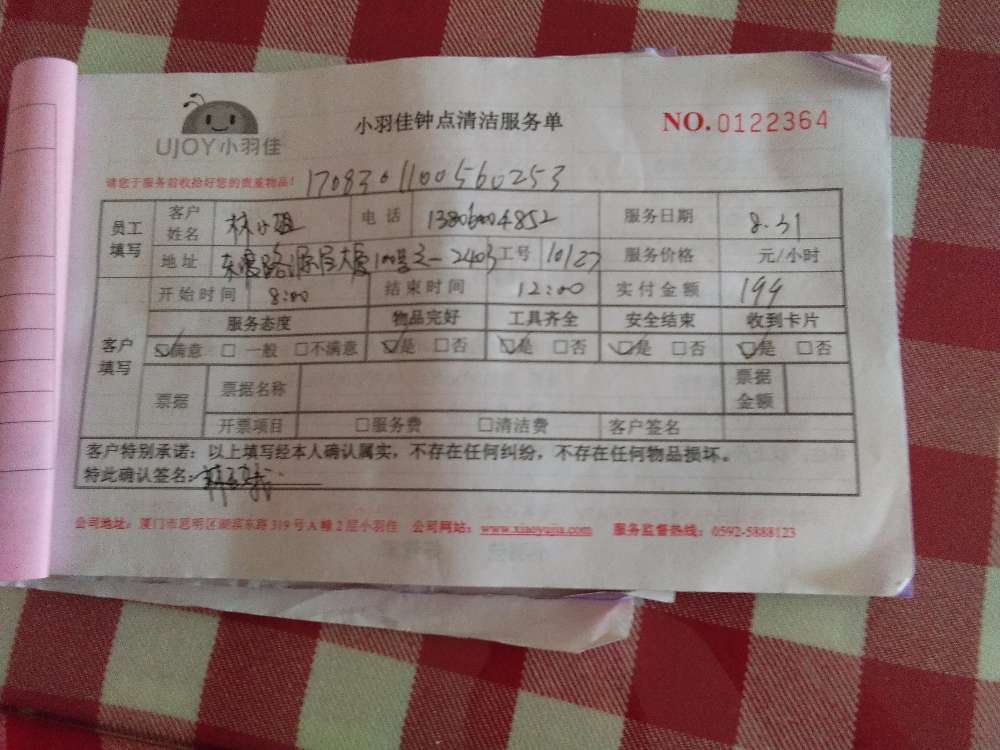 UJOY小羽佳
小羽佳钟点清洁服务单
NO.0122364
请您于服务前收拾好您的贵重物品!
1708301100560253
员工填写 客户姓名 林小姐 电话 服务日期 8.31
地址 工号 10127 服务价格 元/小时
客户填写 开始时间 8:00 结束时间 12:00 实付金额 144
服务态度 物品完好 工具齐全 安全结束 收到卡片
☑满意 □一般 □不满意 ☑是 □否 ☑是 □否 ☑是 □否 ☑是 □否
票据 票据名称 票据金额
开票项目 □服务费 □清洁费 客户签名
客户特别承诺:以上填写经本人确认属实,不存在任何纠纷,不存在任何物品损坏。
特此确认签名:
公司地址:厦门市思明区湖滨东路319号A幢2层小羽佳 公司网站:www.xiaoyujia.com 服务监督热线:0592-5888123